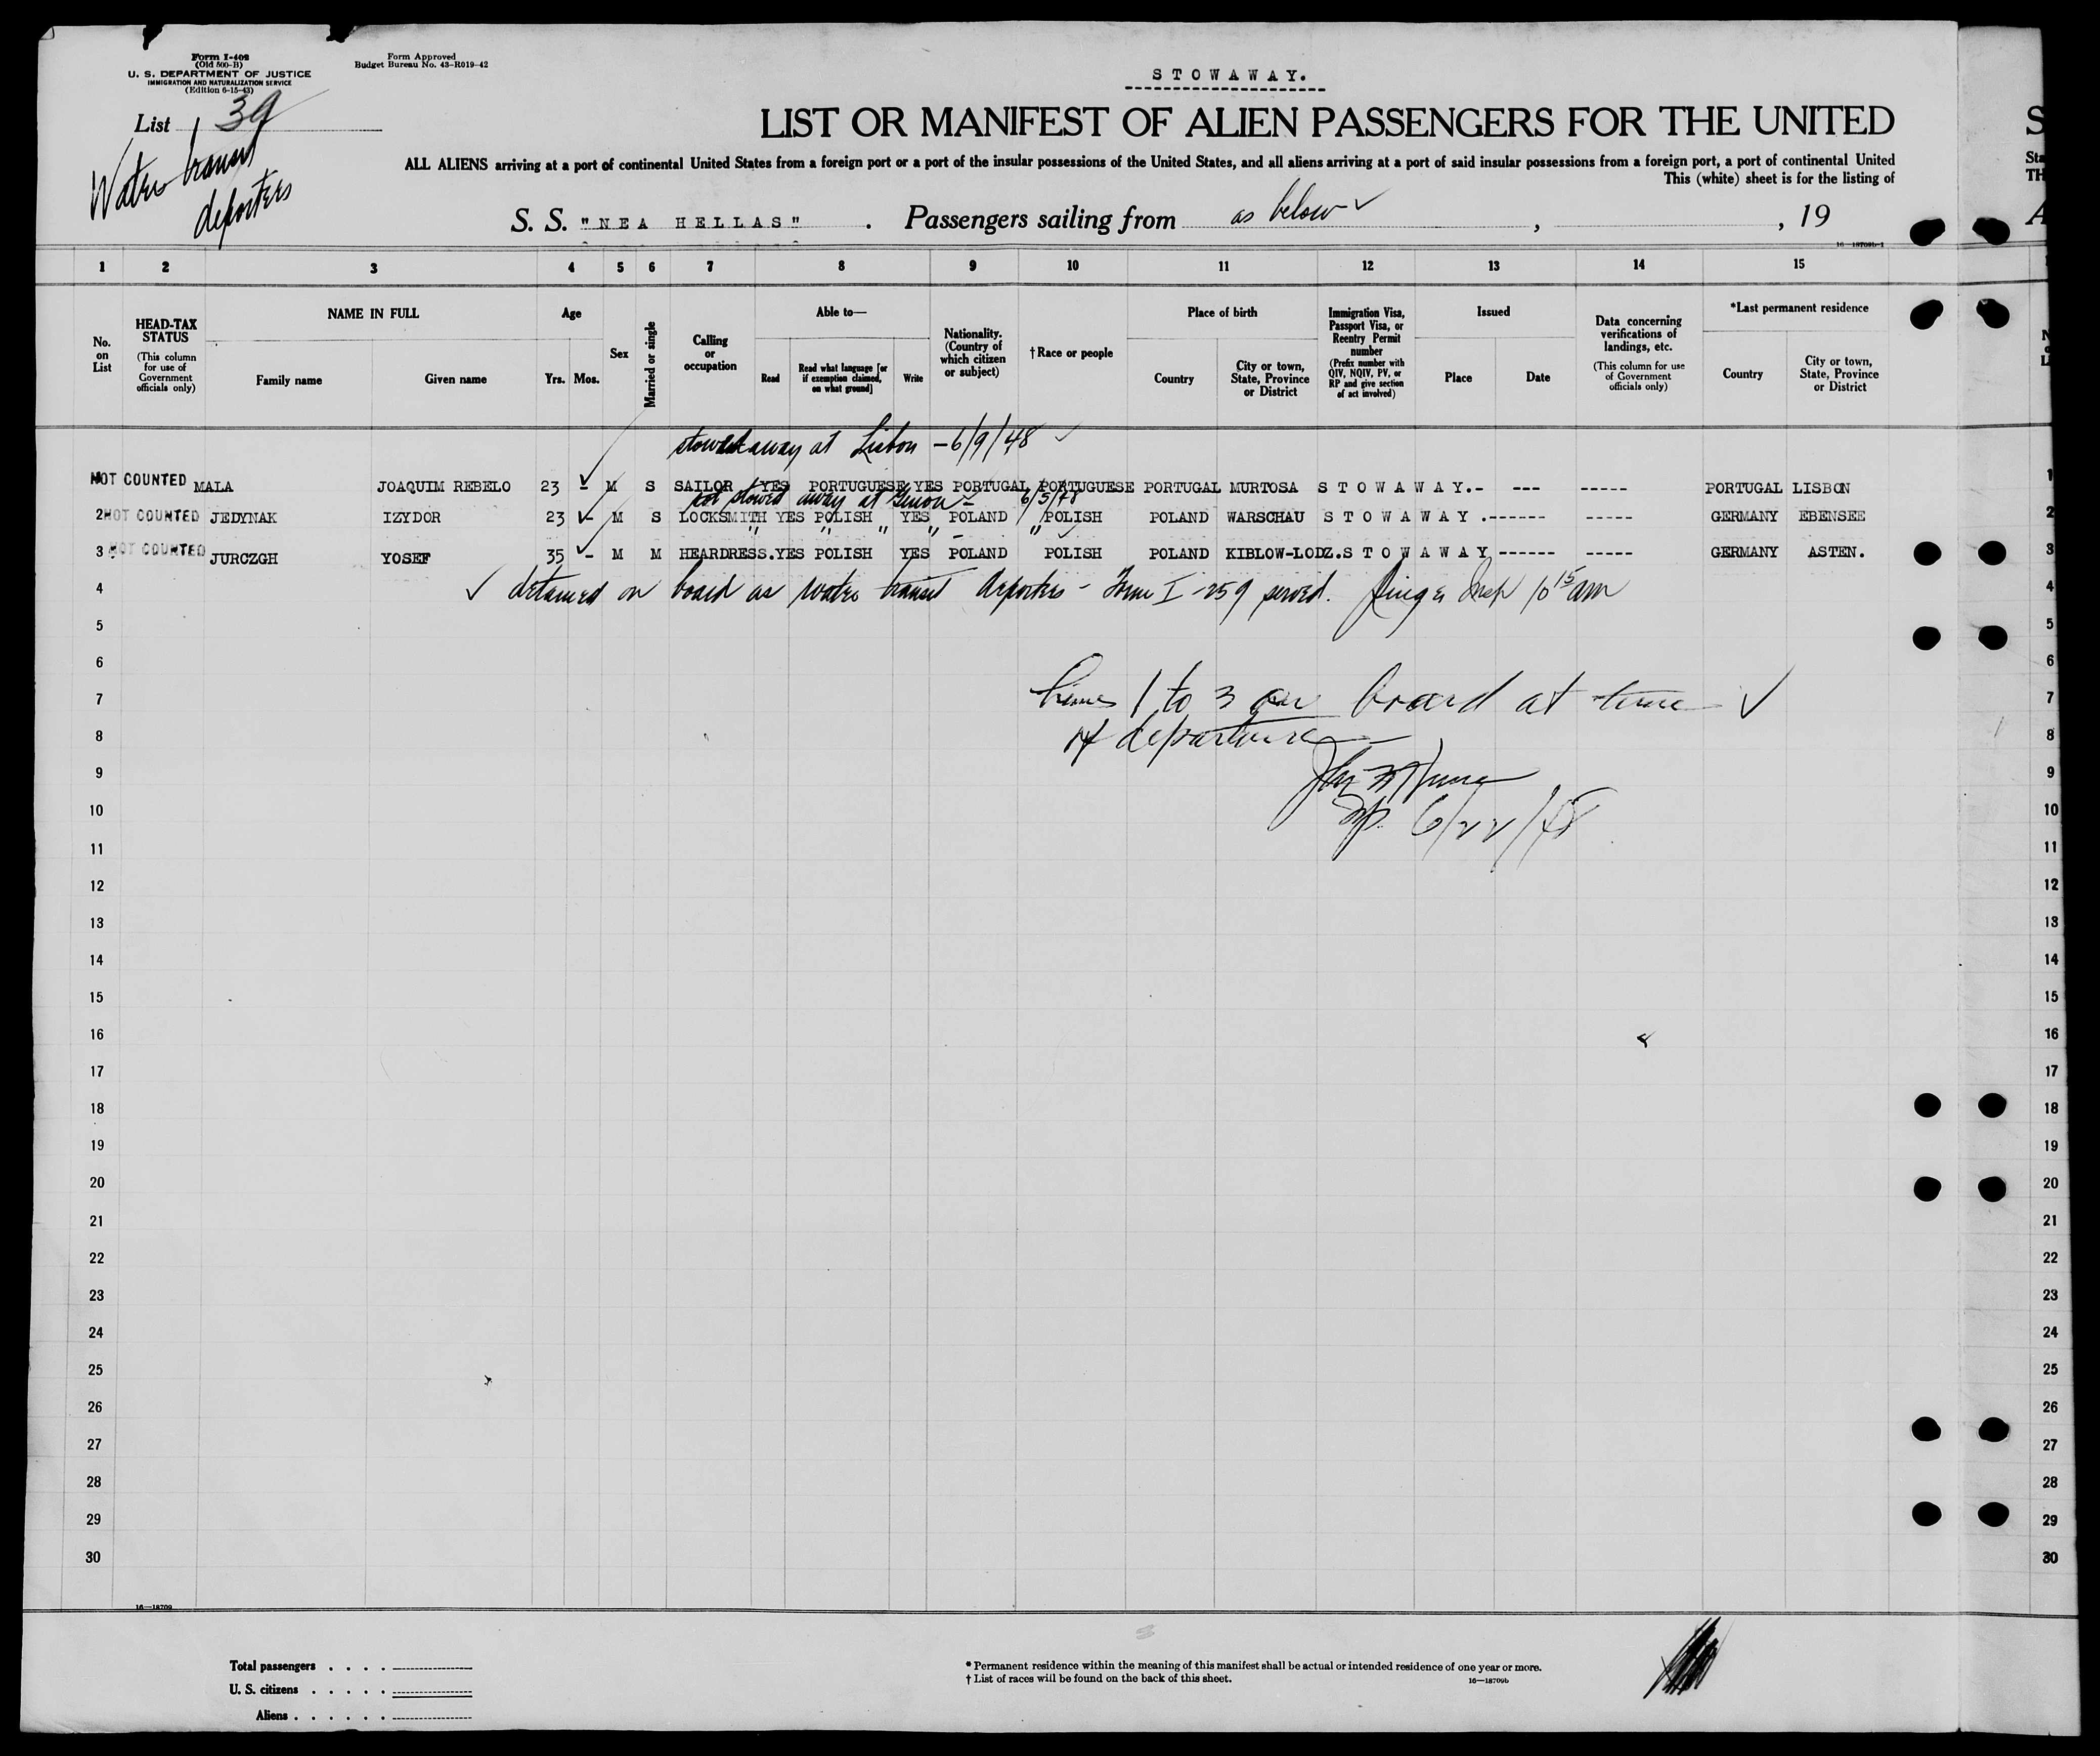 Form I-402
(Old 500-B)
U. S. DEPARTMENT OF JUSTICE
IMMIGRATION AND NATURALIZATION SERVICE
(Edition 6-15-43)
Form Approved
Budget Bureau No. 43-R019-42
List 39
Water transit
deporters
STOWAWAY.
LIST OR MANIFEST OF ALIEN PASSENGERS FOR THE UNITED
ALL ALIENS arriving at a port of continental United States from a foreign port or a port of the insular possessions of the United States, and all aliens arriving at a port of said insular possessions from a foreign port, a port of continental United
This (white) sheet is for the listing of
S. S. "NEA HELLAS" . Passengers sailing from as below ✓ , , 19
16—18709b-1
S
Sta
TH
A
1 2 3 4 5 6 7 8 9 10 11 12 13 14 15
No. on List
HEAD-TAX STATUS
(This column for use of Government officials only)
NAME IN FULL
Family name
Given name
Age
Yrs. Mos.
Sex
Married or single
Calling or occupation
Able to—
Read
Read what language [or if exemption claimed, on what ground]
Write
Nationality. (Country of which citizen or subject)
†Race or people
Place of birth
Country
City or town, State, Province or District
Immigration Visa, Passport Visa, or Reentry Permit number
(Prefix number with QIV, NQIV, PV, or RP and give section of act involved)
Issued
Place
Date
Data concerning verifications of landings, etc.
(This column for use of Government officials only)
*Last permanent residence
Country
City or town, State, Province or District
stowed away at Lisbon - 6/9/48 ✓
NOT COUNTED MALA JOAQUIM REBELO 23 - M S SAILOR YES PORTUGUESE YES PORTUGAL PORTUGUESE PORTUGAL MURTOSA STOWAWAY.- --- ----- PORTUGAL LISBON 1
stowed away at 6/5/48
2 NOT COUNTED JEDYNAK IZYDOR 23 - M S LOCKSMITH YES POLISH YES POLAND POLISH POLAND WARSCHAU STOWAWAY.------ ----- GERMANY EBENSEE 2
" " " " "
3 NOT COUNTED JURCZGH YOSEF 35 - M M HEARDRESS.YES POLISH YES POLAND POLISH POLAND KIBLOW-LODZ.STOWAWAY ------ ----- GERMANY ASTEN. 3
4 ✓ detained on board as water transit deporters - Form I-259 served. Insp 10 15 am 4
5 5
6 6
7 Lines 1 to 3 on board at time ✓ 7
8 of departure 8
9 9
10 6/22/48 10
11 11
12 12
13 13
14 14
15 15
16 16
17 17
18 18
19 19
20 20
21 21
22 22
23 23
24 24
25 25
26 26
27 27
28 28
29 29
30 30
16—18709
Total passengers . . . .
U. S. citizens . . . . .
Aliens . . . . . .
* Permanent residence within the meaning of this manifest shall be actual or intended residence of one year or more.
† List of races will be found on the back of this sheet.
16—18709b